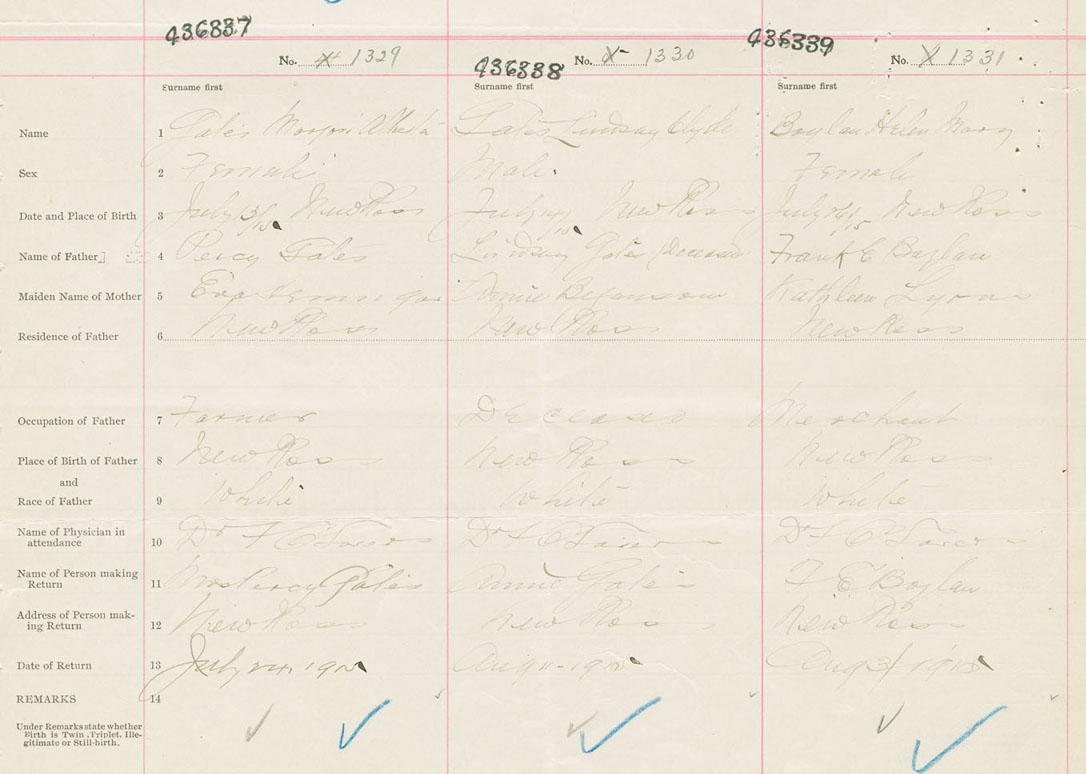 436837 436838 436839
No. 1329 No. 1330 No. 1331
Surname first Surname first Surname first
Name 1 Gates Alberta Gates Lindsay Clyde Boylan Helen Mary
Sex 2 Female Male. Female
Date and Place of Birth 3 July New Ross July New Ross July New Ross
Name of Father 4 Percy Gates Lindsay Gates (Deceased Frank E Boylan
Maiden Name of Mother 5 Annie Kathleen Lyons
Residence of Father 6 New Ross New Ross New Ross
Occupation of Father 7 Farmer Deceased Merchant
Place of Birth of Father 8 New Ross New Ross New Ross
and
Race of Father 9 White White White
Name of Physician in
attendance 10 Dr Dr Dr
Name of Person making
Return 11 Mrs Percy Gates Annie Gates F. E. Boylan
Address of Person mak-
ing Return 12 New Ross New Ross New Ross
Date of Return 13 July 24. 1915 Aug 1915 Aug 3/ 1915
REMARKS 14
Under Remarks state whether
Birth is Twin, Triplet, Ille-
gitimate or Still-birth.